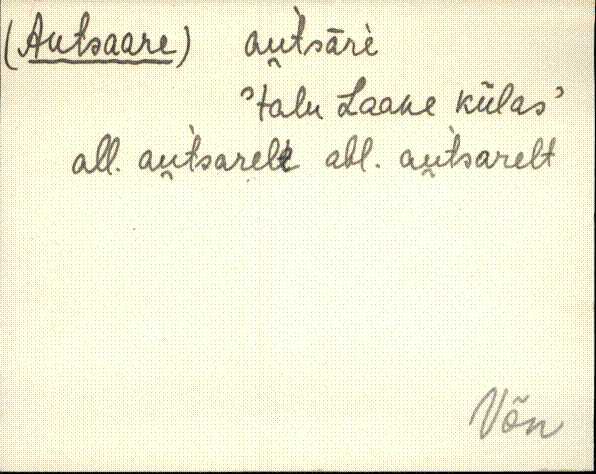 (Autsaare) au̯t̀sārè
'talu Laane külas'
all. au̯t̀sarele abl. au̯t̀sarelt
Võn